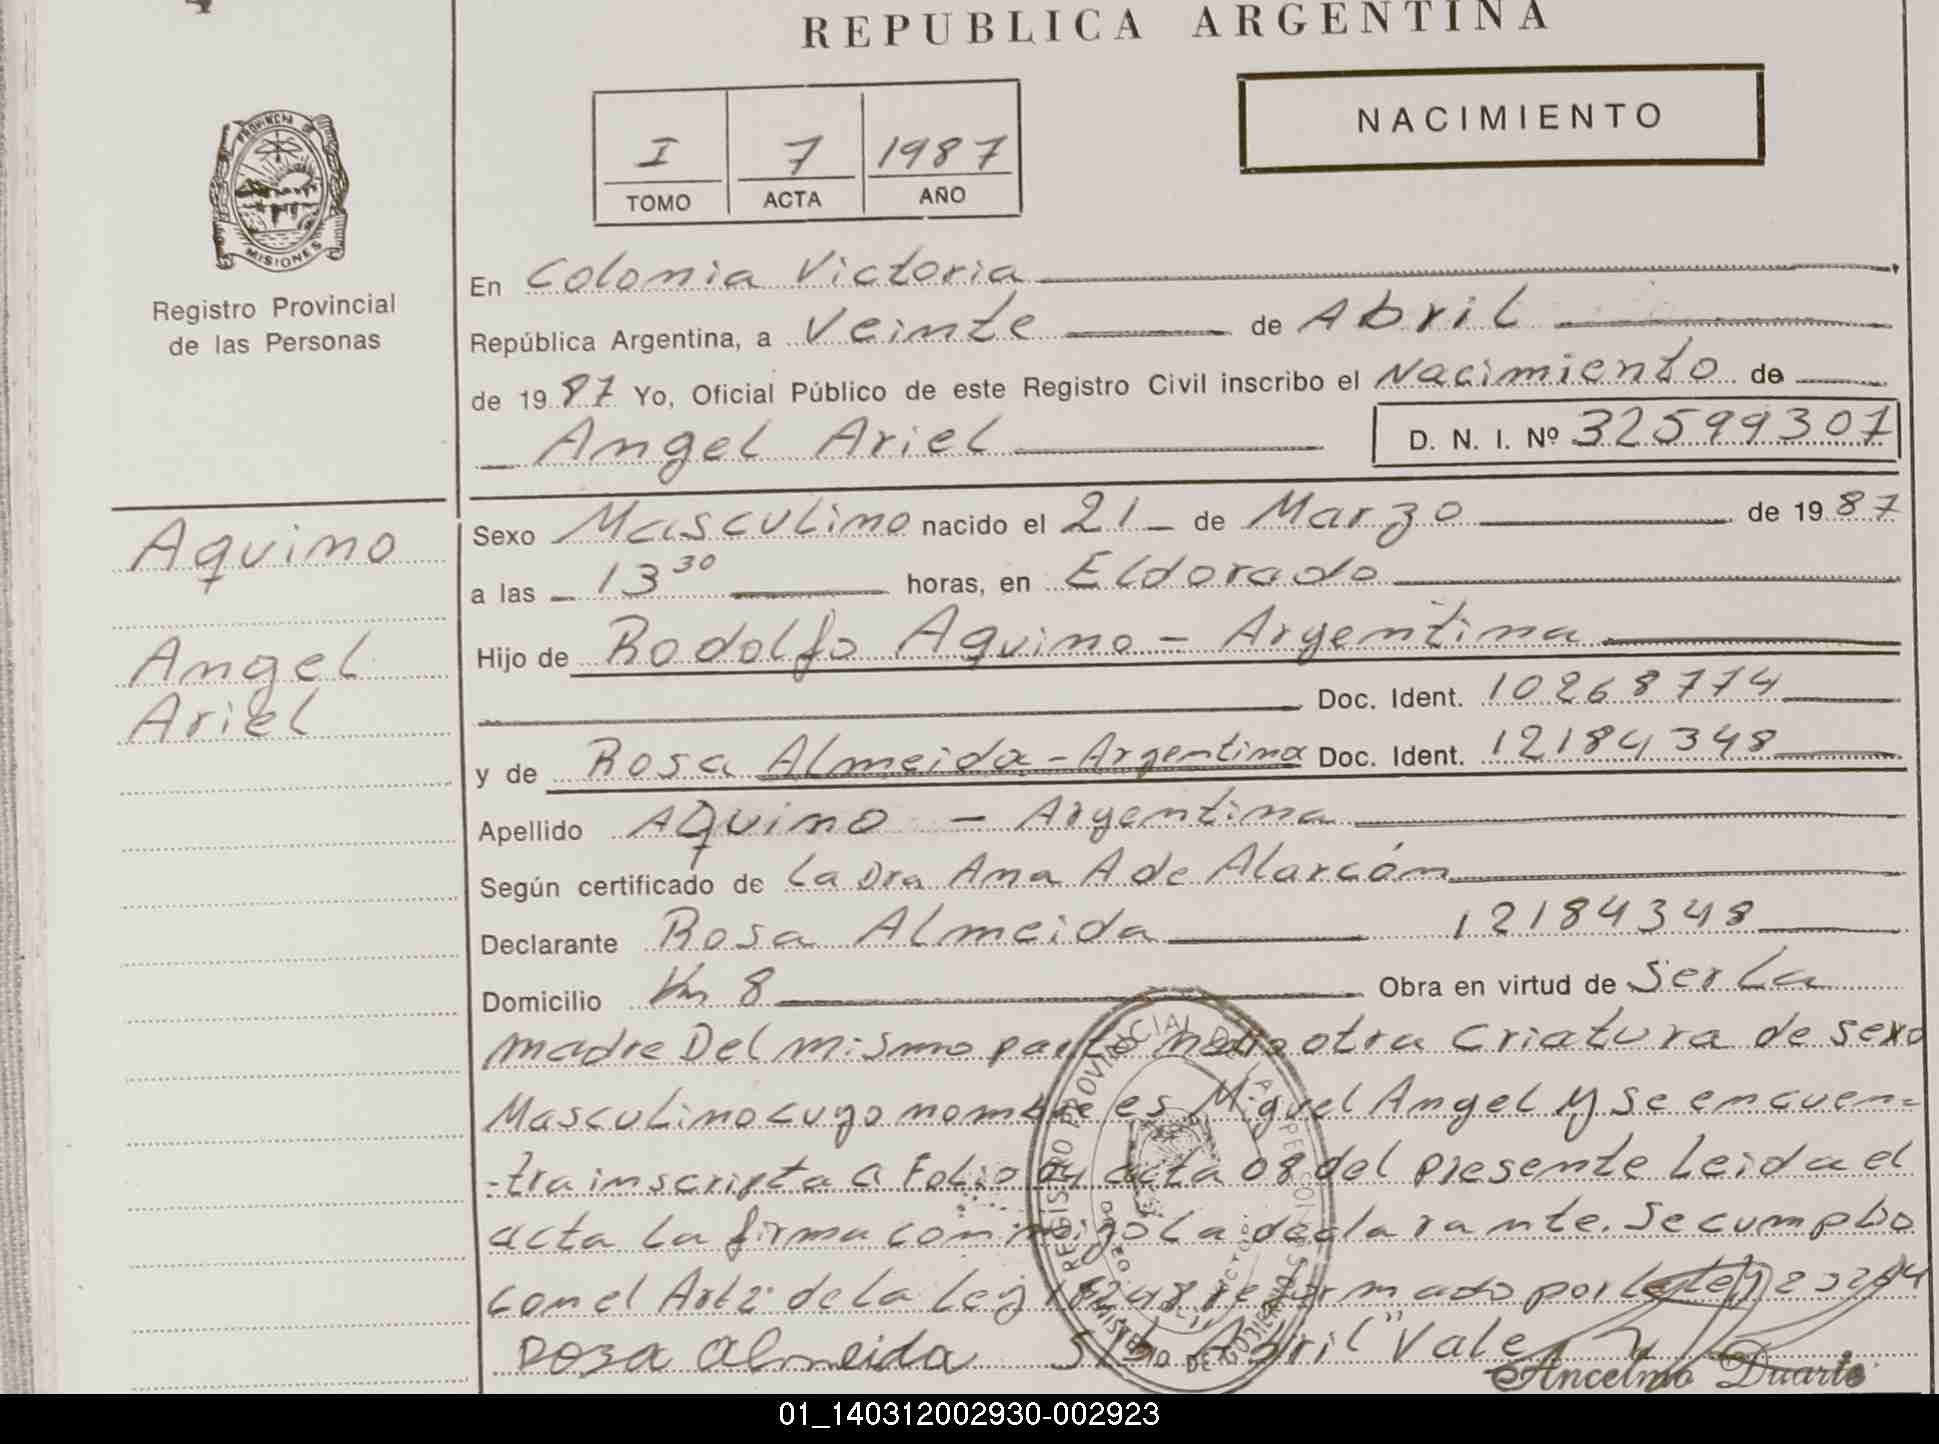 REPUBLICA ARGENTINA
NACIMIENTO
I 7 1987
TOMO ACTA AÑO
PROVINCIA DE
MISIONES
Registro Provincial
de las Personas
En Colonia Victoria
República Argentina, a Veinte de Abril
de 19 87 Yo, Oficial Público de este Registro Civil inscribo el Nacimiento de
Angel Ariel D. N. I. Nº 32599307
Aquino
Angel
Ariel
Sexo Masculino nacido el 21 de Marzo de 19 87
a las 13 30 horas, en Eldorado
Hijo de Rodolfo Aquino - Argentina
Doc. Ident. 10268774
y de Rosa Almeida - Argentina Doc. Ident. 12184348
Apellido Aquino - Argentina
Según certificado de La Dra Ana A de Alarcón
Declarante Rosa Almeida 12184348
Domicilio Km 8 Obra en virtud de Ser La
madre Del mismo parto nacio otra Criatura de sexo
Masculino cuyo nombre es Miguel Angel y se encuen-
-tra inscripta a Folio 04 acta 08 del presente Leida el
acta La firma conmigo La declarante. Se cumplio
con el Art 2 de la Ley 18248 reformado por la Ley 23264
Rosa Almeida S/b Abril "Vale
Ancelmo Duarte
REGISTRO PROVINCIAL DE LAS PERSONAS
01_140312002930-002923